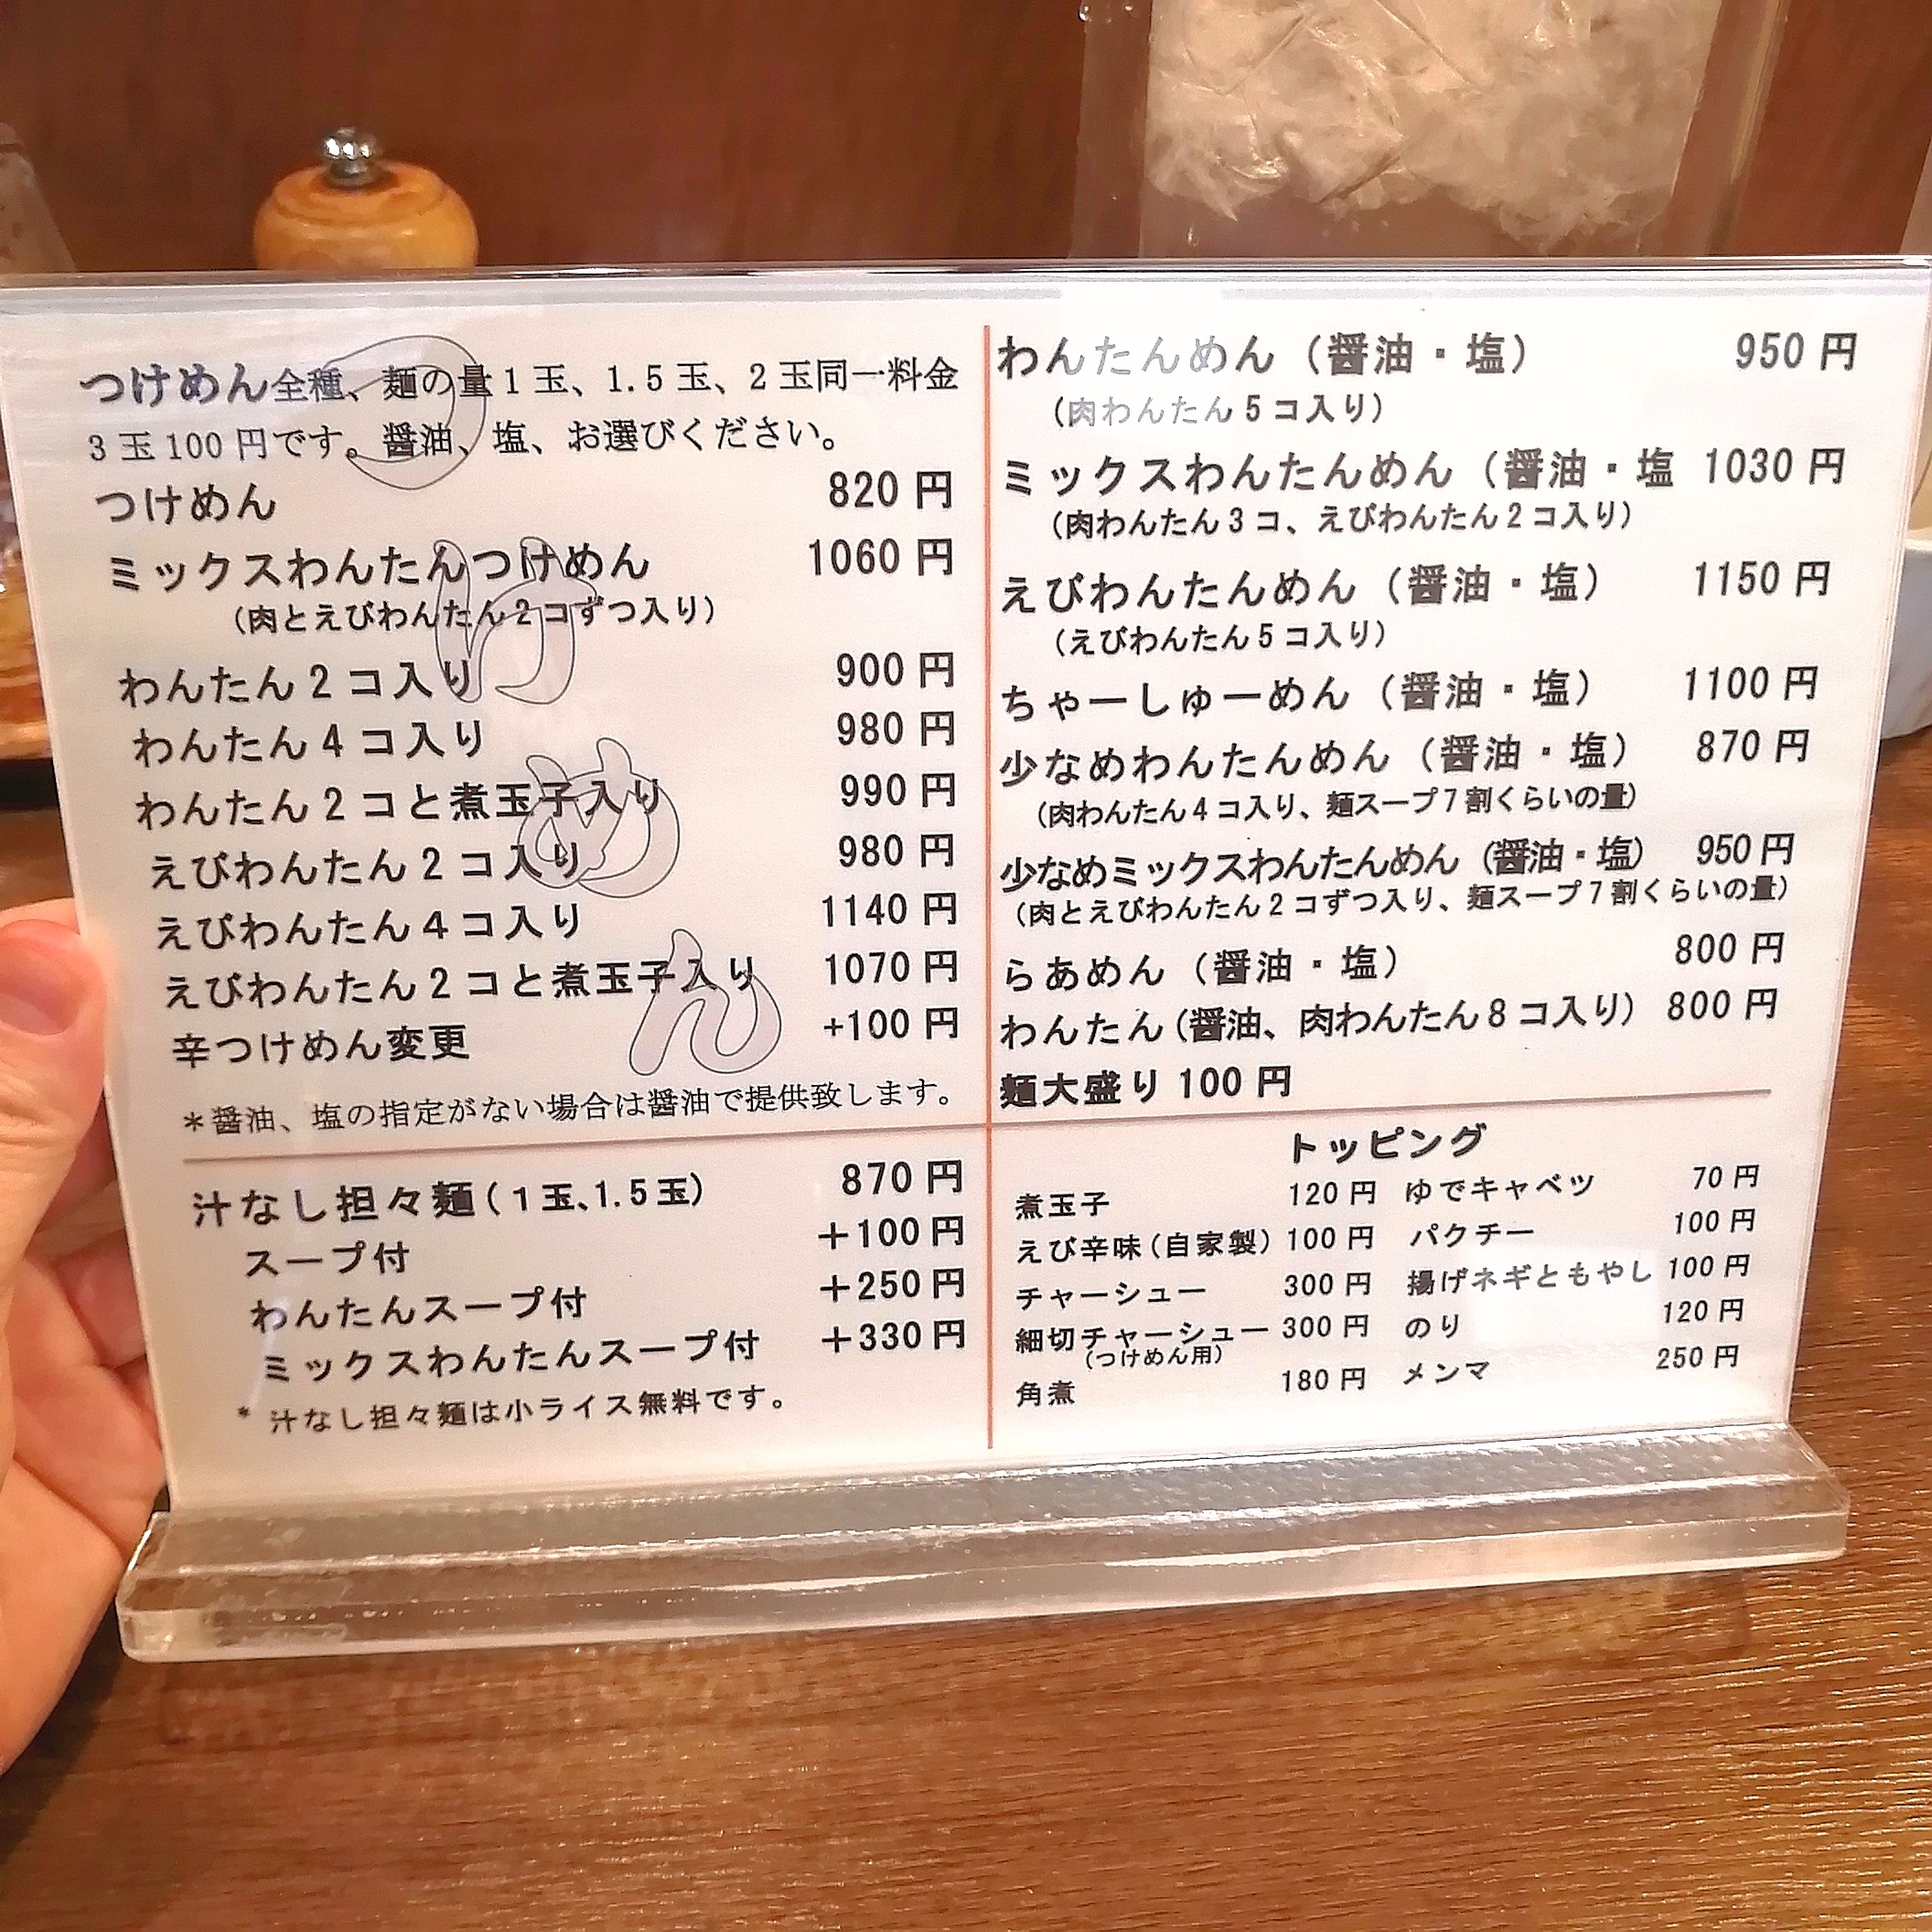 つけめん全種、麺の量1玉、1.5玉、2玉同一料金
3玉100円です。醤油、塩、お選びください。
つけめん 820円
ミックスわんたんつけめん 1060円
(肉とえびわんたん2コずつ入り)
わんたん2コ入り 900円
わんたん4コ入り 980円
わんたん2コと煮玉子入り 990円
えびわんたん2コ入り 980円
えびわんたん4コ入り 1140円
えびわんたん2コと煮玉子入り 1070円
辛つけめん変更 +100円
*醤油、塩の指定がない場合は醤油で提供致します。
つけめん
汁なし担々麺(1玉、1.5玉) 870円
スープ付 +100円
わんたんスープ付 +250円
ミックスわんたんスープ付 +330円
* 汁なし担々麺は小ライス無料です。
わんたんめん(醤油・塩) 950円
(肉わんたん5コ入り)
ミックスわんたんめん(醤油・塩 1030円
(肉わんたん3コ、えびわんたん2コ入り)
えびわんたんめん(醤油・塩) 1150円
(えびわんたん5コ入り)
ちゃーしゅーめん(醤油・塩) 1100円
少なめわんたんめん(醤油・塩) 870円
(肉わんたん4コ入り、麺スープ7割くらいの量)
少なめミックスわんたんめん(醤油・塩) 950円
(肉とえびわんたん2コずつ入り、麺スープ7割くらいの量)
らあめん(醤油・塩) 800円
わんたん(醤油、肉わんたん8コ入り) 800円
麺大盛り100円
トッピング
煮玉子 120円 ゆでキャベツ 70円
えび辛味(自家製) 100円 パクチー 100円
チャーシュー 300円 揚げネギともやし 100円
細切チャーシュー 300円 のり 120円
(つけめん用)
角煮 180円 メンマ 250円